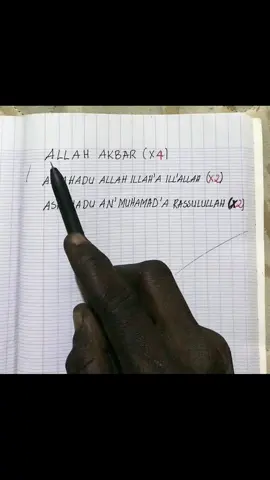 ALLAH AKBAR (x4)
ALLAH ILLAH'A ILL'ALLAH (x2)
AN' MUHAMAD'A RASSULULLAH (x2)